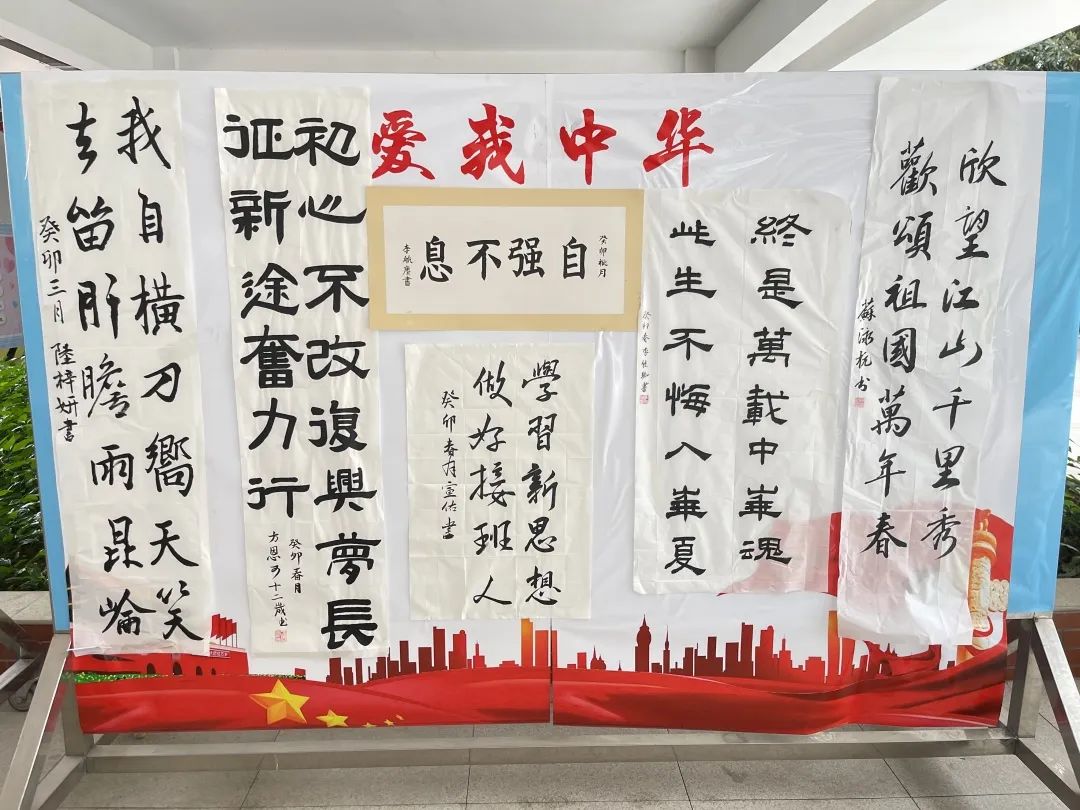 爱我中华
欣望江山千里秀
歡頌祖國萬年春
蘇泳杭书
終是萬載中華魂
此生不悔入華夏
癸卯春李
癸卯桃月
自强不息
學習新思想
做好接班人
癸卯春月宣佑書
初心不改復興夢長
征新途奮力行
癸卯春月
方恩可十二歲
我自橫刀嚮天笑
去留肝膽兩昆崘
癸卯三月 陸梓妍書